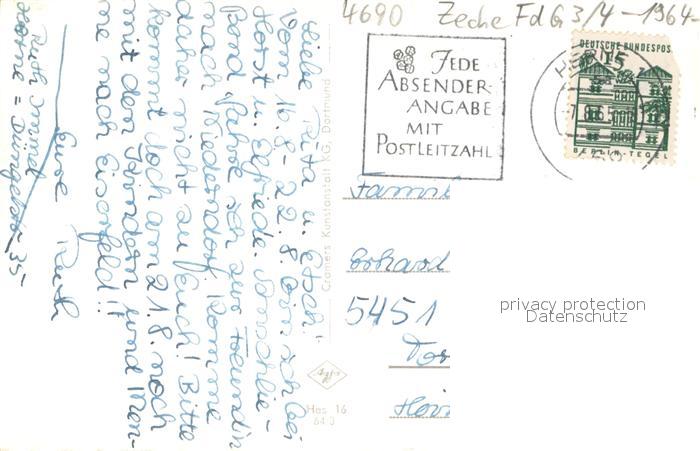 4690 Zeche FdG 3/4 - 1964
JEDE
ABSENDER-
ANGABE
MIT
POSTLEITZAHL
DEUTSCHE BUNDESPOS
15
BERLIN-TEGEL
Liebe Rita u. Erich!
Vom 16.8-22.8 bin ich bei
Horst u. Elfriede. Anschlie-
ßend fahre ich zur Freundin
nach Niederndorf. Komme
daher nicht zu Euch! Bitte
kommt doch am 21.8. noch
mit den Kindern und
nach Eiserfeld!!
Eure Ruth
Ruth
Herne = 35
Cramers Kunstanstalt KG, Dortmund
Hes 16
64 3
Famil
Erhard
5451
privacy protection
Datenschutz